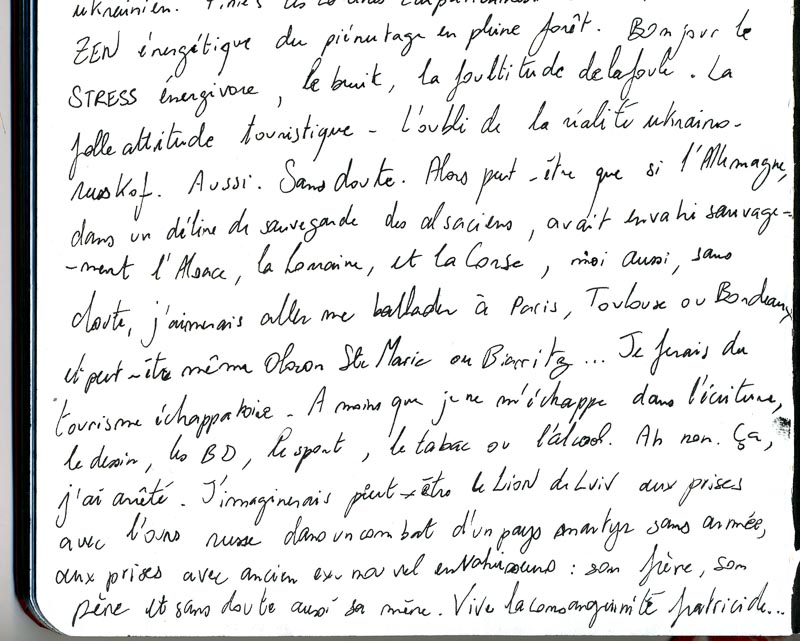 ukrainien. Finies les
ZEN énergétique du piémutage en pleine forêt. Bonjour le
STRESS énergivore, le bruit, la foultitude de la foule. La
folle attitude touristique - L'oubli de la réalité ukraino-
ruskof. Aussi. Sans doute. Alors peut-être que si l'Allemagne,
dans un délire de sauvegarde des alsaciens, avait envahi sauvage-
-ment l'Alsace, la Lorraine, et la Corse, moi aussi, sans
doute, j'aimerais aller me ballader à Paris, Toulouse ou Bordeaux,
et peut-être même Oloron Ste Marie ou Biarritz... Je ferais du
tourisme échappatoire - A moins que je ne m'échappe dans l'écriture,
le dessin, les BD, le sport, le tabac ou l'alcool. Ah non. Ça,
j'ai arrêté. J'imaginerais peut-être le Lion de Lviv aux prises
avec l'ours russe dans un combat d'un pays martyr sans armée,
aux prises avec ancien ex-nouvel envahisseurs : son frère, son
père et sans doute aussi sa mère. Vive la consanguinité fratricide...